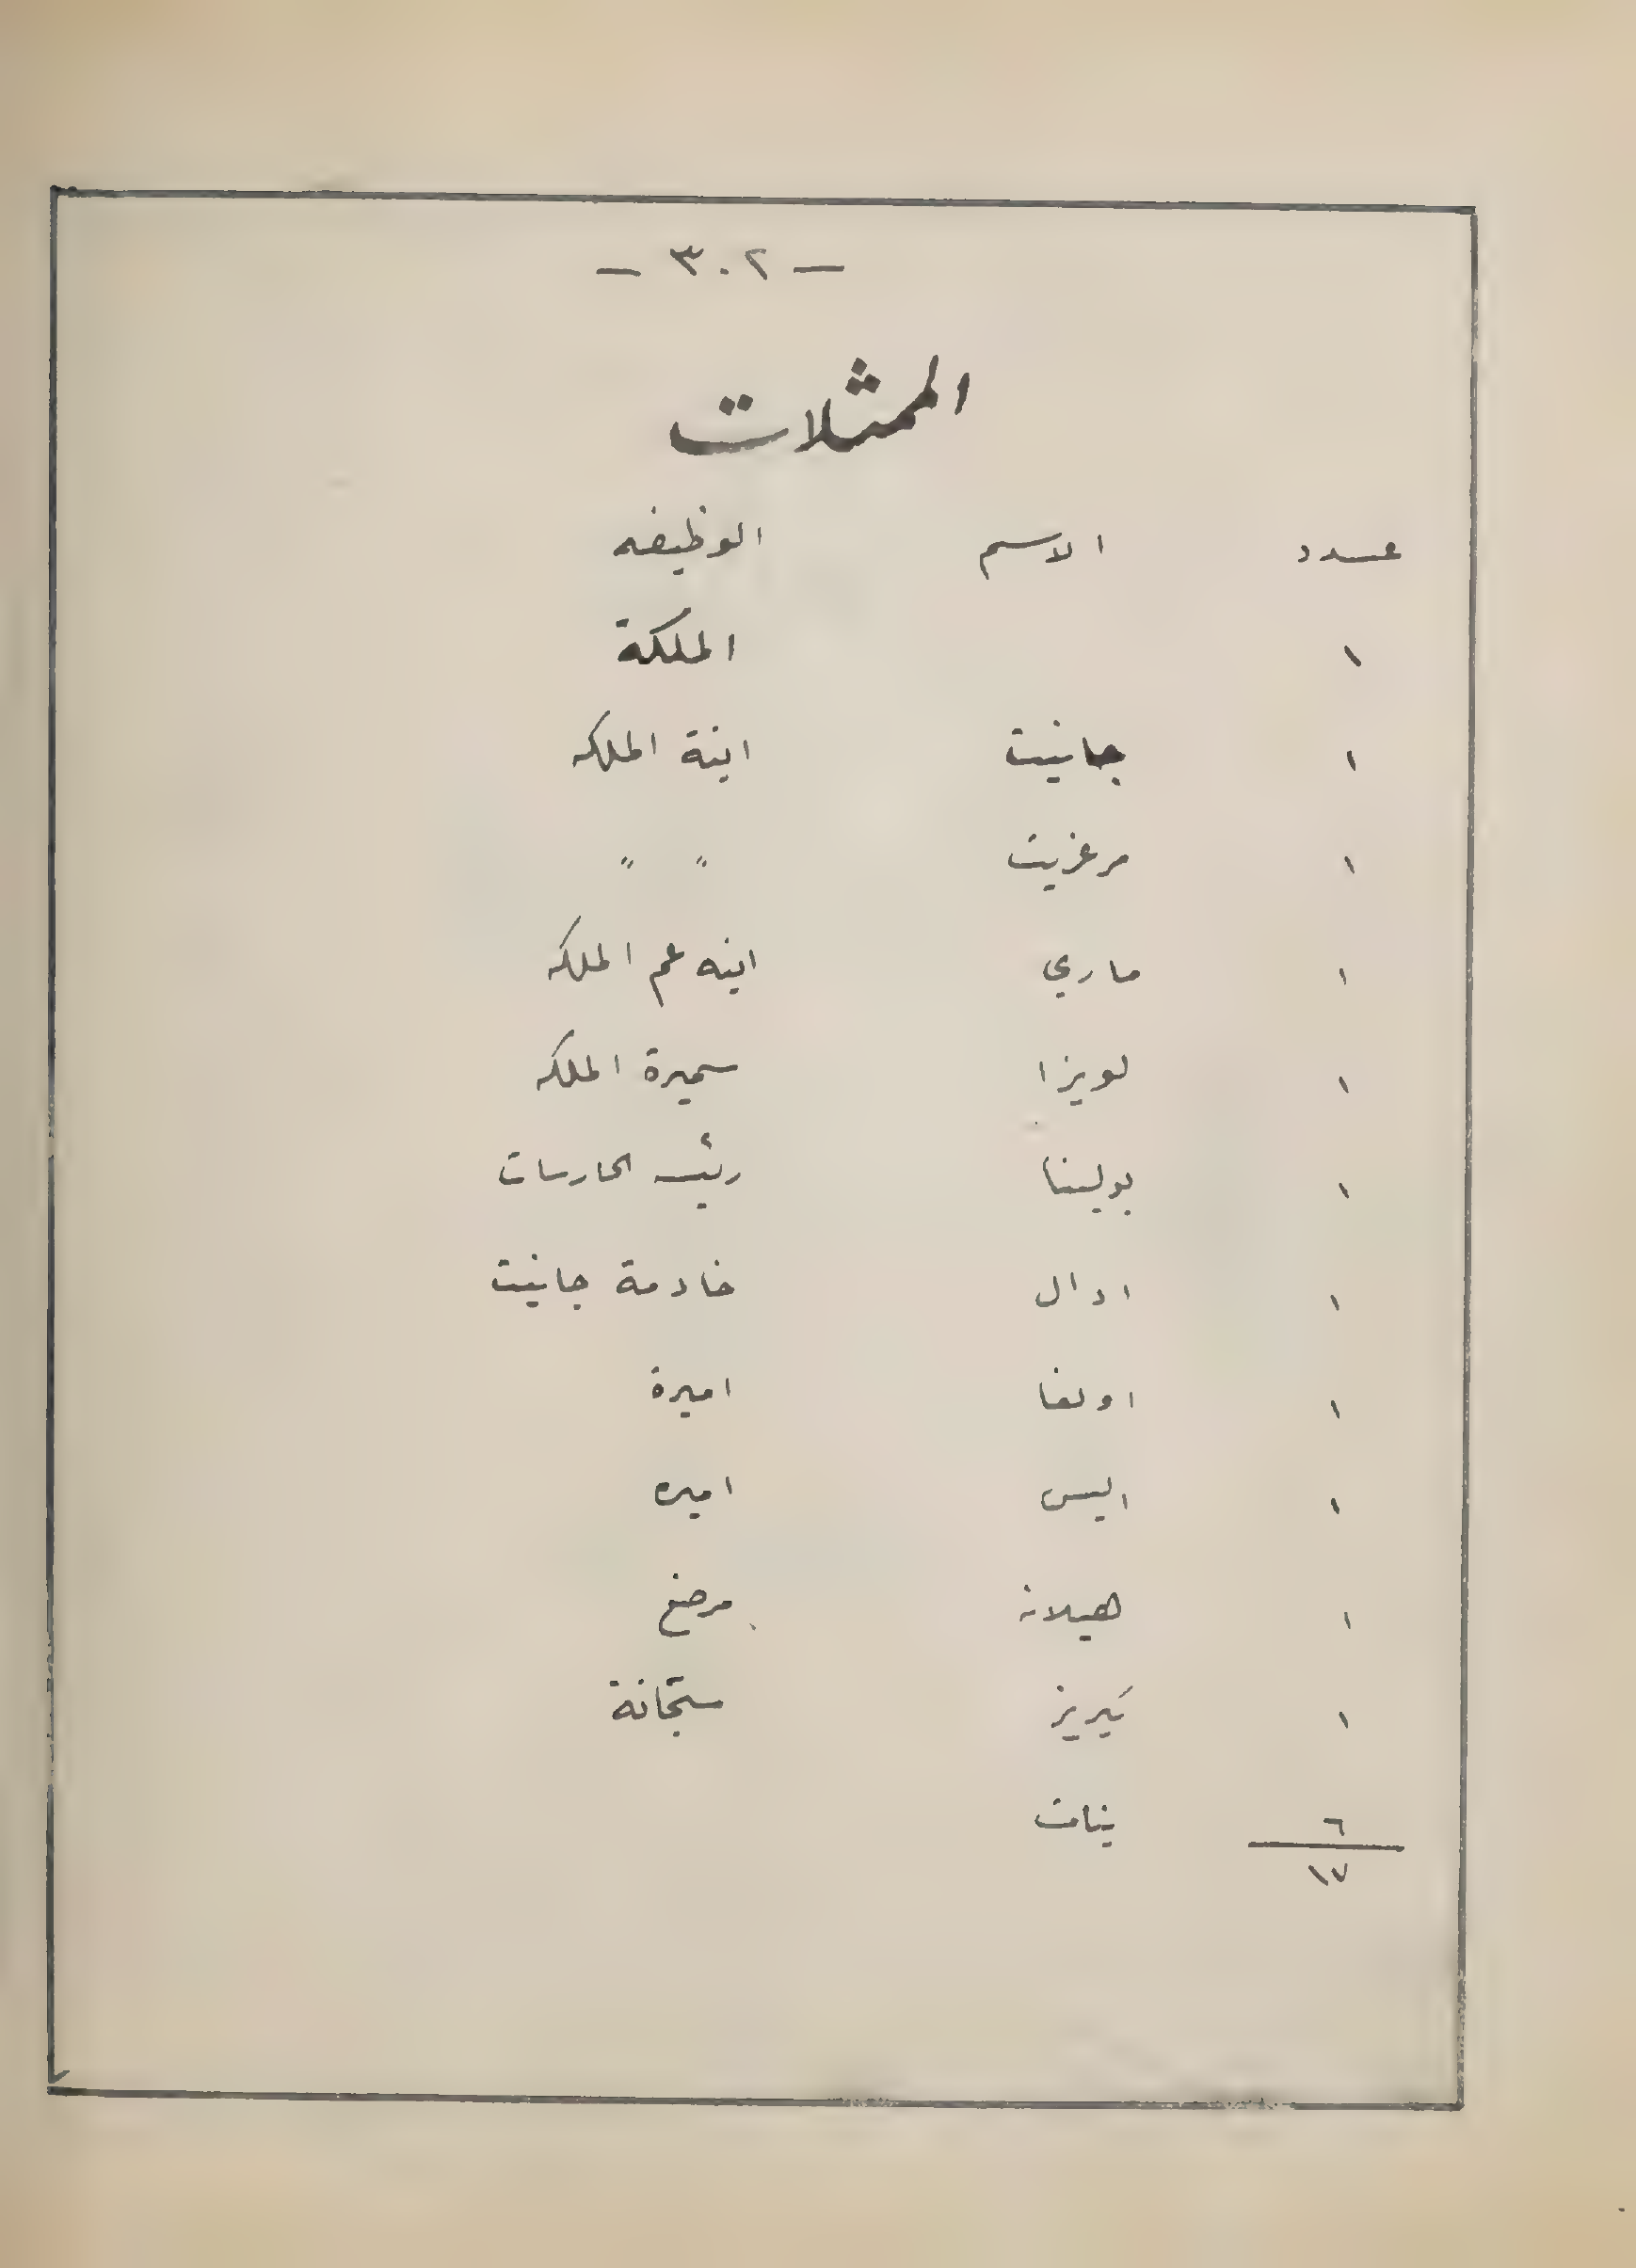 — ٣٠٢ —
الممثلات
عدد الاسم الوظيفه
١ الملكة
١ جانيت ابنة الملكه
١ مرغريت " "
١ ماري ابنه عم الملكه
١ لويزا سميرة الملكه
١ بولينا رئيسه الحارسات
١ ادال خادمة جانيت
١ اولغا اميرة
١ اليس اميره
١ هيلانه مرضع
١ سجانة
٦ بنات
١٧